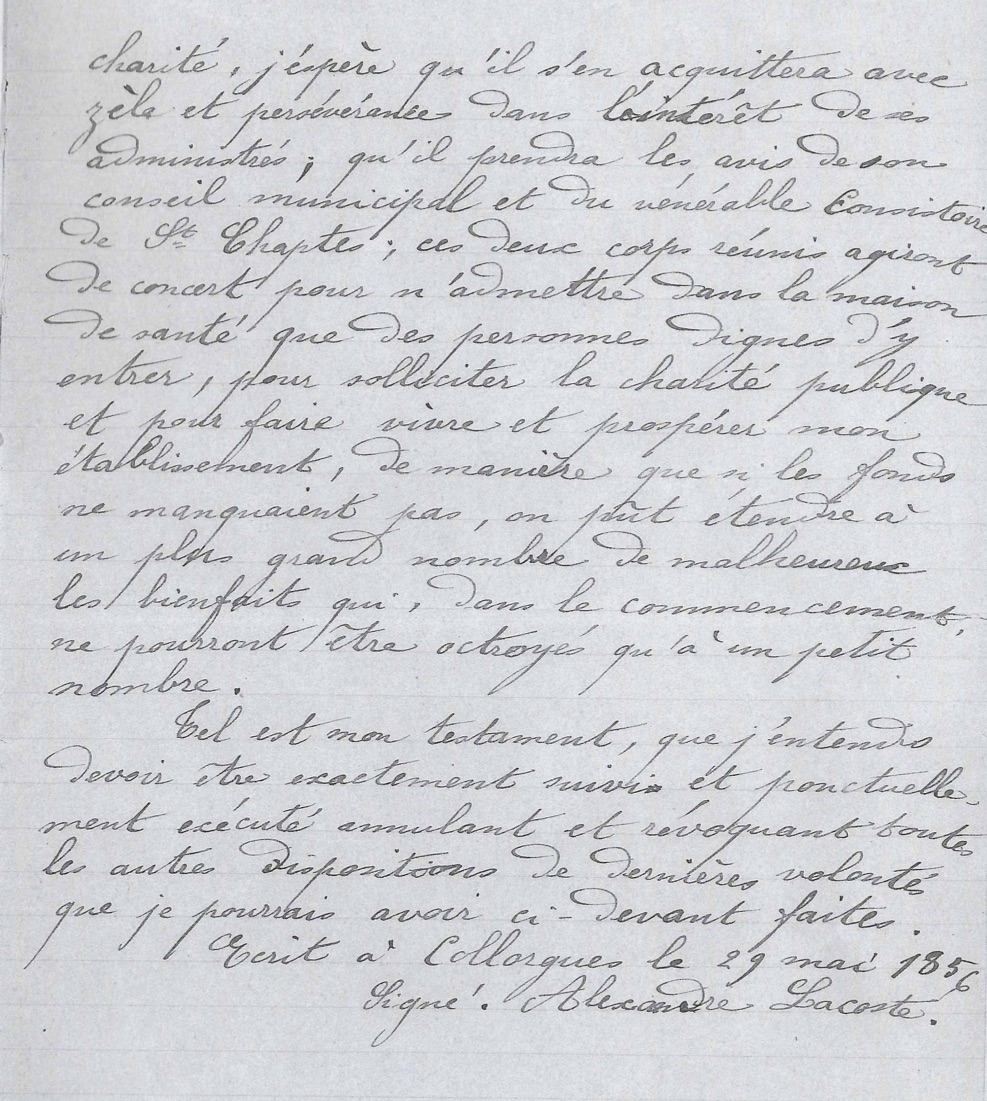 charité, j'éspère qu'il s'en acquittera avec
zèle et persévérance dans l'intérêt de ses
administrés ; qu'il prendra les avis de son
conseil municipal et du vénérable Consistoire
de St Chaptes ; ces deux corps réunis agiront
de concert pour n'admettre dans la maison
de santé que des personnes dignes d'y
entrer, pour solliciter la charité publique
et pour faire vivre et prospérer mon
établissement, de manière que si les fonds
ne manquaient pas, on pût étendre à
un plus grand nombre de malheureux
les bienfaits qui, dans le commencement,
ne pourront être octroyés qu'à un petit
nombre.
Tel est mon testament, que j'entends
devoir être exactement suivi et ponctuelle-
ment exécuté annulant et révoquant toutes
les autres dispositions de dernières volontés
que je pourrais avoir ci-devant faites.
Ecrit à Collorgues le 29 mai 1856
Signé. Alexandre Lacoste.